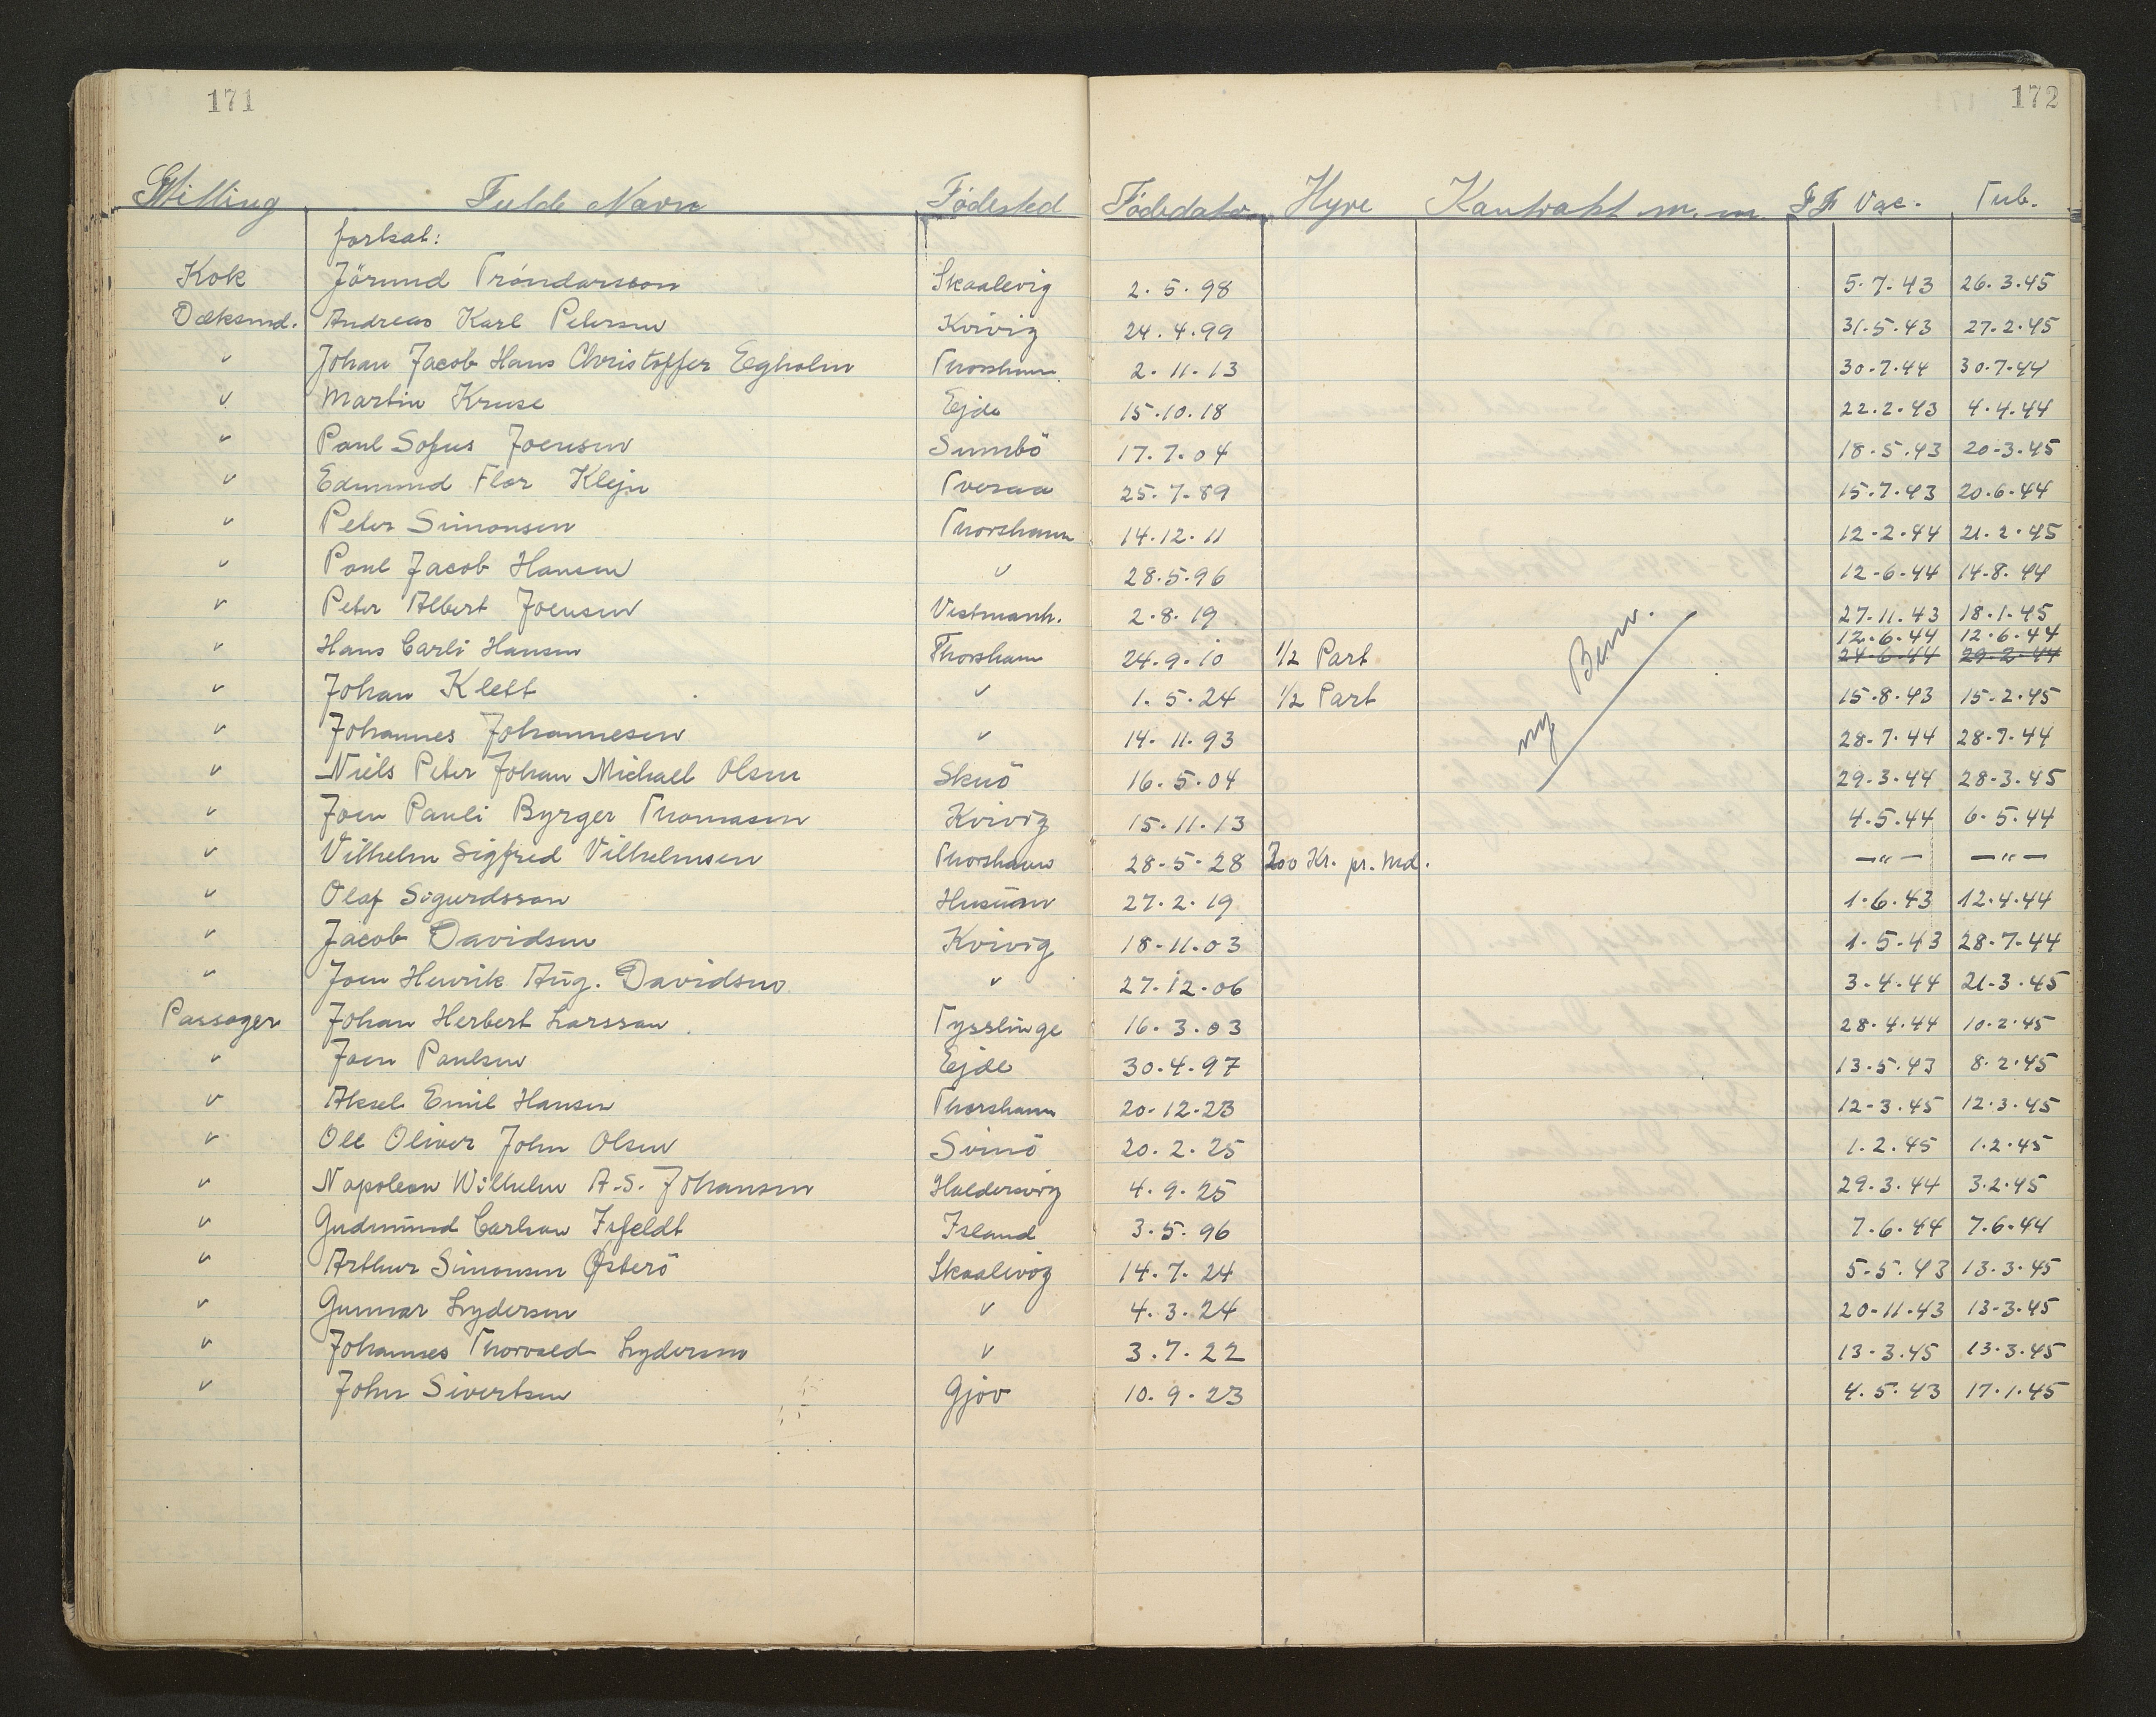 171 172
Stilling Fulde Navn Fødested Fødedato Hyre Kontrakt m. m. FF Vac. Tub.
fortsat:
Kok Jörund Tróndarsson Skaalevig 2.5.98 5.7.43 26.3.45
Dæksmd. Andreas Karl Petersen Kvivig 24.4.99 31.5.43 27.2.45
" Johan Jacob Hans Christoffer Egholm Thorshavn 2.11.13 30.7.44 30.7.44
" Martin Kruse Ejde 15.10.18 22.2.43 4.4.44
" Paul Sofus Joensen Sumbö 17.7.04 18.5.43 20.3.45
" Edmund Flor Klejn Tveraa 25.7.89 15.7.43 20.6.44
" Peter Simonsen Thorshavn 14.12.11 12.2.44 21.2.45
" Poul Jacob Hansen " 28.5.96 12.6.44 14.8.44
" Peter Albert Joensen Vestmanh. 2.8.19 27.11.43 18.1.45
12.6.44 12.6.44
" Hans Carli Hansen Thorshavn 24.9.10 1/2 Part 24.6.44 29.2.44
" Johan Klett " 1.5.24 1/2 Part 15.8.43 15.2.45
" Johannes Johannesen " 14.11.93 28.7.44 28.7.44
" Niels Peter Johan Michael Olsen Skuö 16.5.04 29.3.44 28.3.45
" Joen Pauli Byrger Thomasen Kvivig 15.11.13 4.5.44 6.5.44
" Vilhelm Sigfred Vilhelmsen Thorshavn 28.5.28 200 Kr. pr. Md. —"— —"—
" Olaf Sigurdsson Husum 27.2.19 1.6.43 12.4.44
" Jacob Davidsen Kvivig 18.11.03 1.5.43 28.7.44
" Joen Henrik Aug. Davidsen " 27.12.06 3.4.44 21.3.45
Passager Johan Herbert Larsson Tysslinge 16.3.03 28.4.44 10.2.45
" Joen Paulsen Ejde 30.4.97 13.5.43 8.2.45
" Aksel Emil Hansen Thorshavn 20.12.23 12.3.45 12.3.45
" Ole Oliver John Olsen Svinö 20.2.25 1.2.45 1.2.45
" Napoleon Wilhelm A.S. Johansen Haldersvig 4.9.25 29.3.44 3.2.45
" Gudmund Carlson Isfeldt Island 3.5.96 7.6.44 7.6.44
" Arthur Simonsen Østerö Skaalevig 14.7.24 5.5.43 13.3.45
" Gunnar Lydersen " 4.3.24 20.11.43 13.3.45
" Johannes Thorvald Lydersen " 3.7.22 13.3.45 13.3.45
" John Sivertsen Gjov 10.9.23 4.5.43 17.1.45